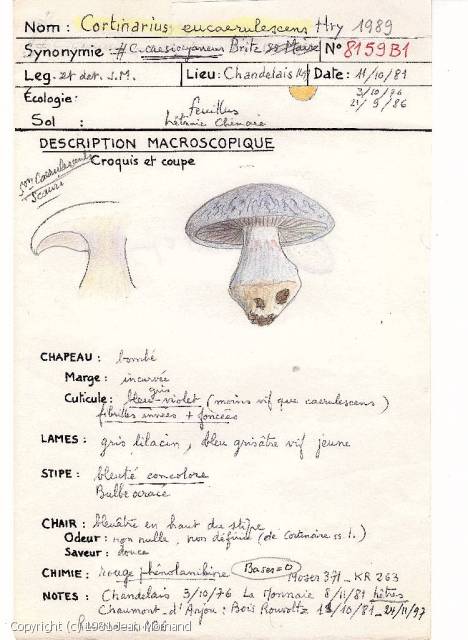 Nom : Cortinarius eucaerulescens Hry 1989
Synonymie : # C. caesiocyaneus Britz ss Moser N° 8159B1
Leg. et det. J.M. Lieu : Chandelais Date : 11/10/81
Écologie : 3/10/76
feuillus 21/9/86
Sol : hêtraie chênaie
DESCRIPTION MACROSCOPIQUE
Croquis et coupe
CHAPEAU : bombé
Marge : incurvée
gris
Cuticule : bleu-violet (moins vif que caerulescens)
fibrilles innées + foncées
LAMES : gris lilacin, bleu grisâtre vif jeune
STIPE : bleuté concolore
Bulbe ocracé
CHAIR : bleuâtre en haut du stipe
Odeur : non nulle, non définie (de Cortinaire ss. l.)
Saveur : douce
CHIMIE : rouge phénolaniline Bases=0 Moser 371 - KR 263
NOTES : Chandelais 3/10/76 La Monnaie 8/11/81 hêtres
Chaumont-d'Anjou : Bois Rouvoltz 11/10/81 - 24/11/97
Copyright (c) 1981 Jean Mornand